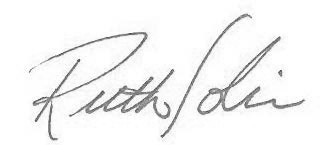 Ruth Solie